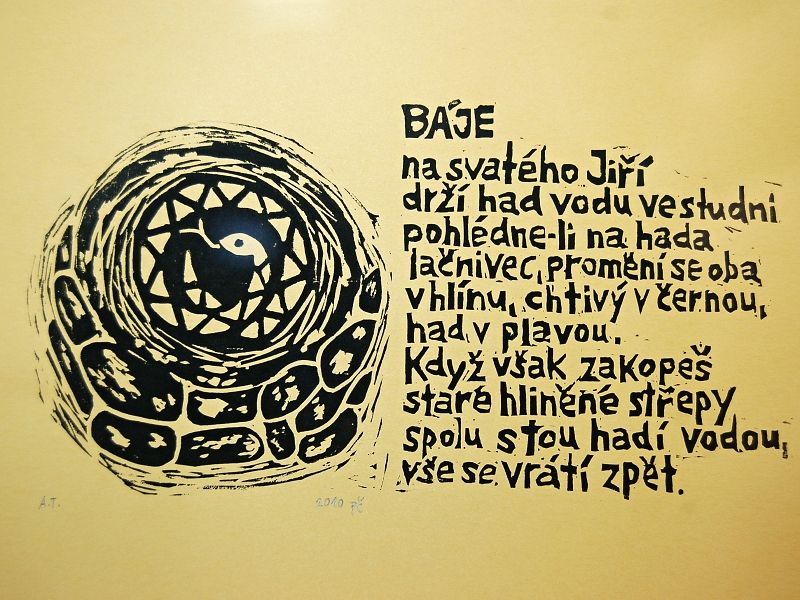 BÁJE
na svatého Jiří
drží had vodu ve studni
pohlédne-li na hada
lačnivec, promění se oba
v hlínu, chtivý v černou,
had v plavou.
Když však zakopeš
staré hliněné střepy
spolu s tou hadí vodou,
vše se vrátí zpět.
A.T.
2010 PČ